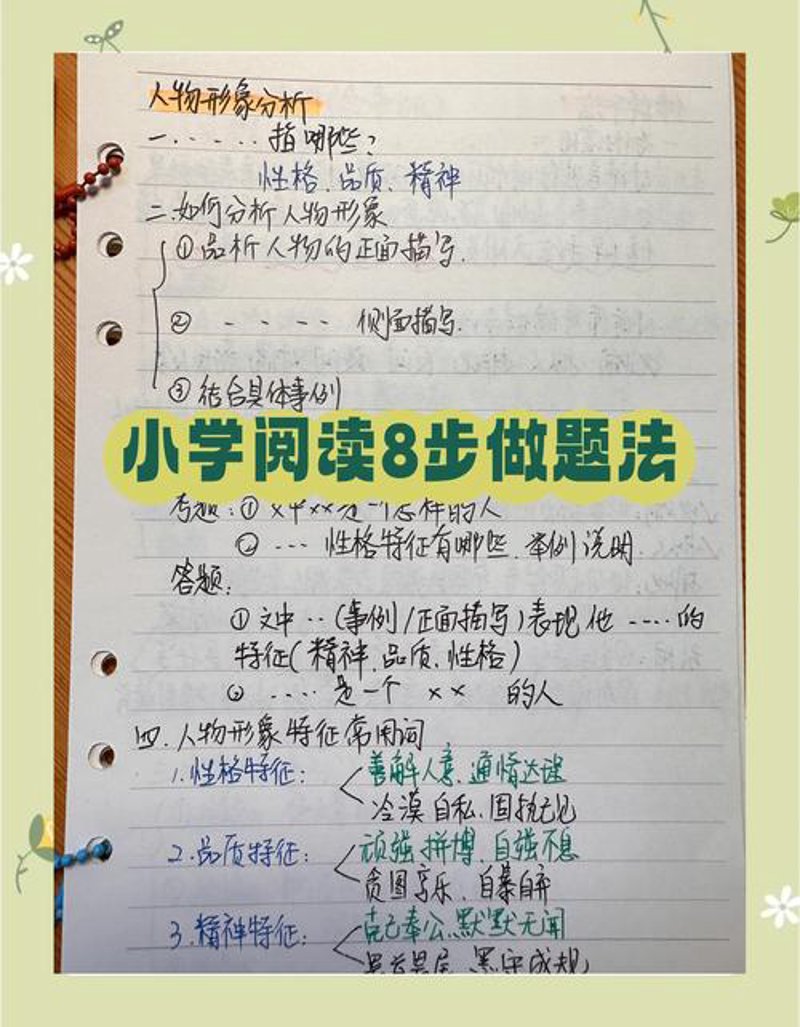 人物形象分析
一.····· 指哪些?
性格、品质、精神
二.如何分析人物形象
①品析人物的正面描写.
② - - - - 侧面描写.
③结合具体事例
小学阅读8步做题法
考题:① 文中xx是一个怎样的人
② --- 性格特征有哪些.举例说明.
答题:
①文中··(事例/正面描写)表现他····的
特征(精神、品质、性格)
② ····· 是一个 xx 的人
四.人物形象特征常用词
1.性格特征: 善解人意、通情达理
冷漠自私、固执己见
2.品质特征: 顽强拼搏、自强不息
贪图享乐、自暴自弃
3.精神特征: 克己奉公、默默无闻
墨守成规